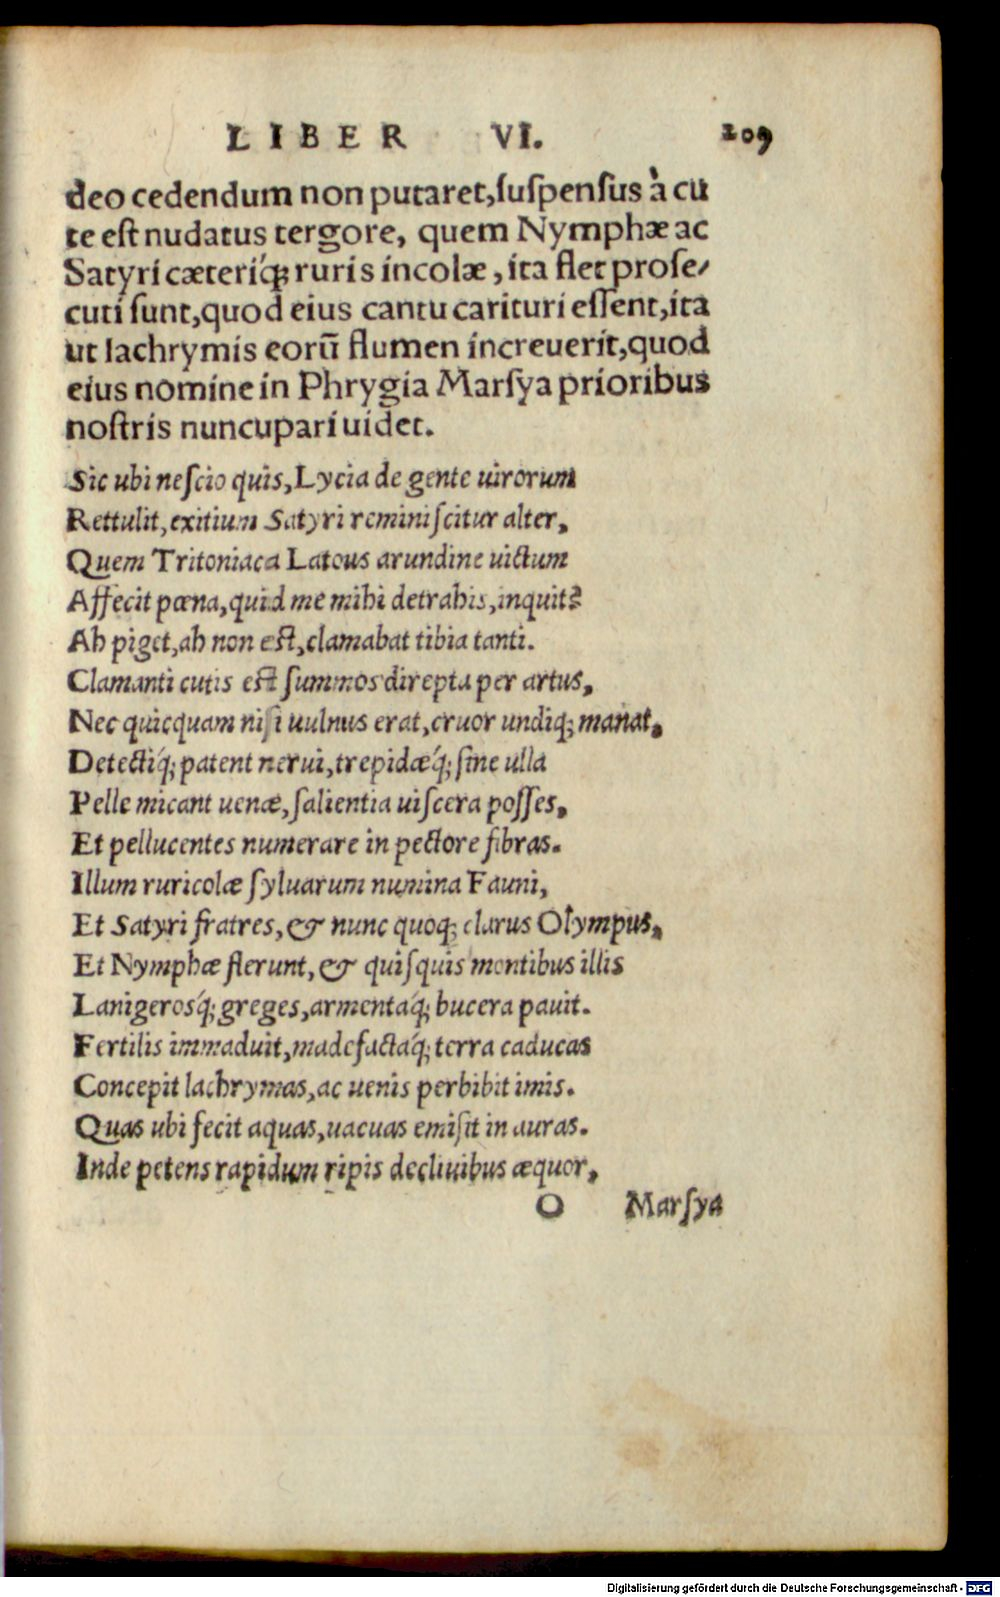 LIBER VI. 209
deo cedendum non putaret,suspensus à cu
te est nudatus tergore, quem Nymphæ ac
Satyri cæteriq́; ruris incolæ, ita flet prose⸗
cuti sunt,quod eius cantu carituri essent,ita
ut lachrymis eorũ flumen increuerit,quod
eius nomine in Phrygia Marsya prioribus
nostris nuncupari uidet.
Sic ubi nescio quis,Lycia de gente uirorum
Rettulit,exitium Satyri reminiscitur alter,
Quem Tritoniaca Latous arundine uictum
Affecit pœna,quid me mihi detrahis,inquit?
Ah piget,ah non est,clamabat tibia tanti.
Clamanti cutis est summos direpta per artus,
Nec quicquam nisi uulnus erat,cruor undiq; manat,
Detectiq́; patent nerui,trepidæq́; sine ulla
Pelle micant uenæ,salientia uiscera posses,
Et pellucentes numerare in pectore fibras.
Illum ruricolæ syluarum numina Fauni,
Et Satyri fratres,& nunc quoq; clarus Olympus,
Et Nymphæ flerunt,& quisquis montibus illis
Lanigerosq́; greges,armentaq́; bucera pauit.
Fertilis immaduit,madefactaq́; terra caducas
Concepit lachrymas,ac uenis perbibit imis.
Quas ubi fecit aquas,uacuas emisit in auras.
Inde petens rapidum ripis decliuibus æquor,
O Marsya
Digitalisierung gefördert durch die Deutsche Forschungsgemeinschaft - DFG